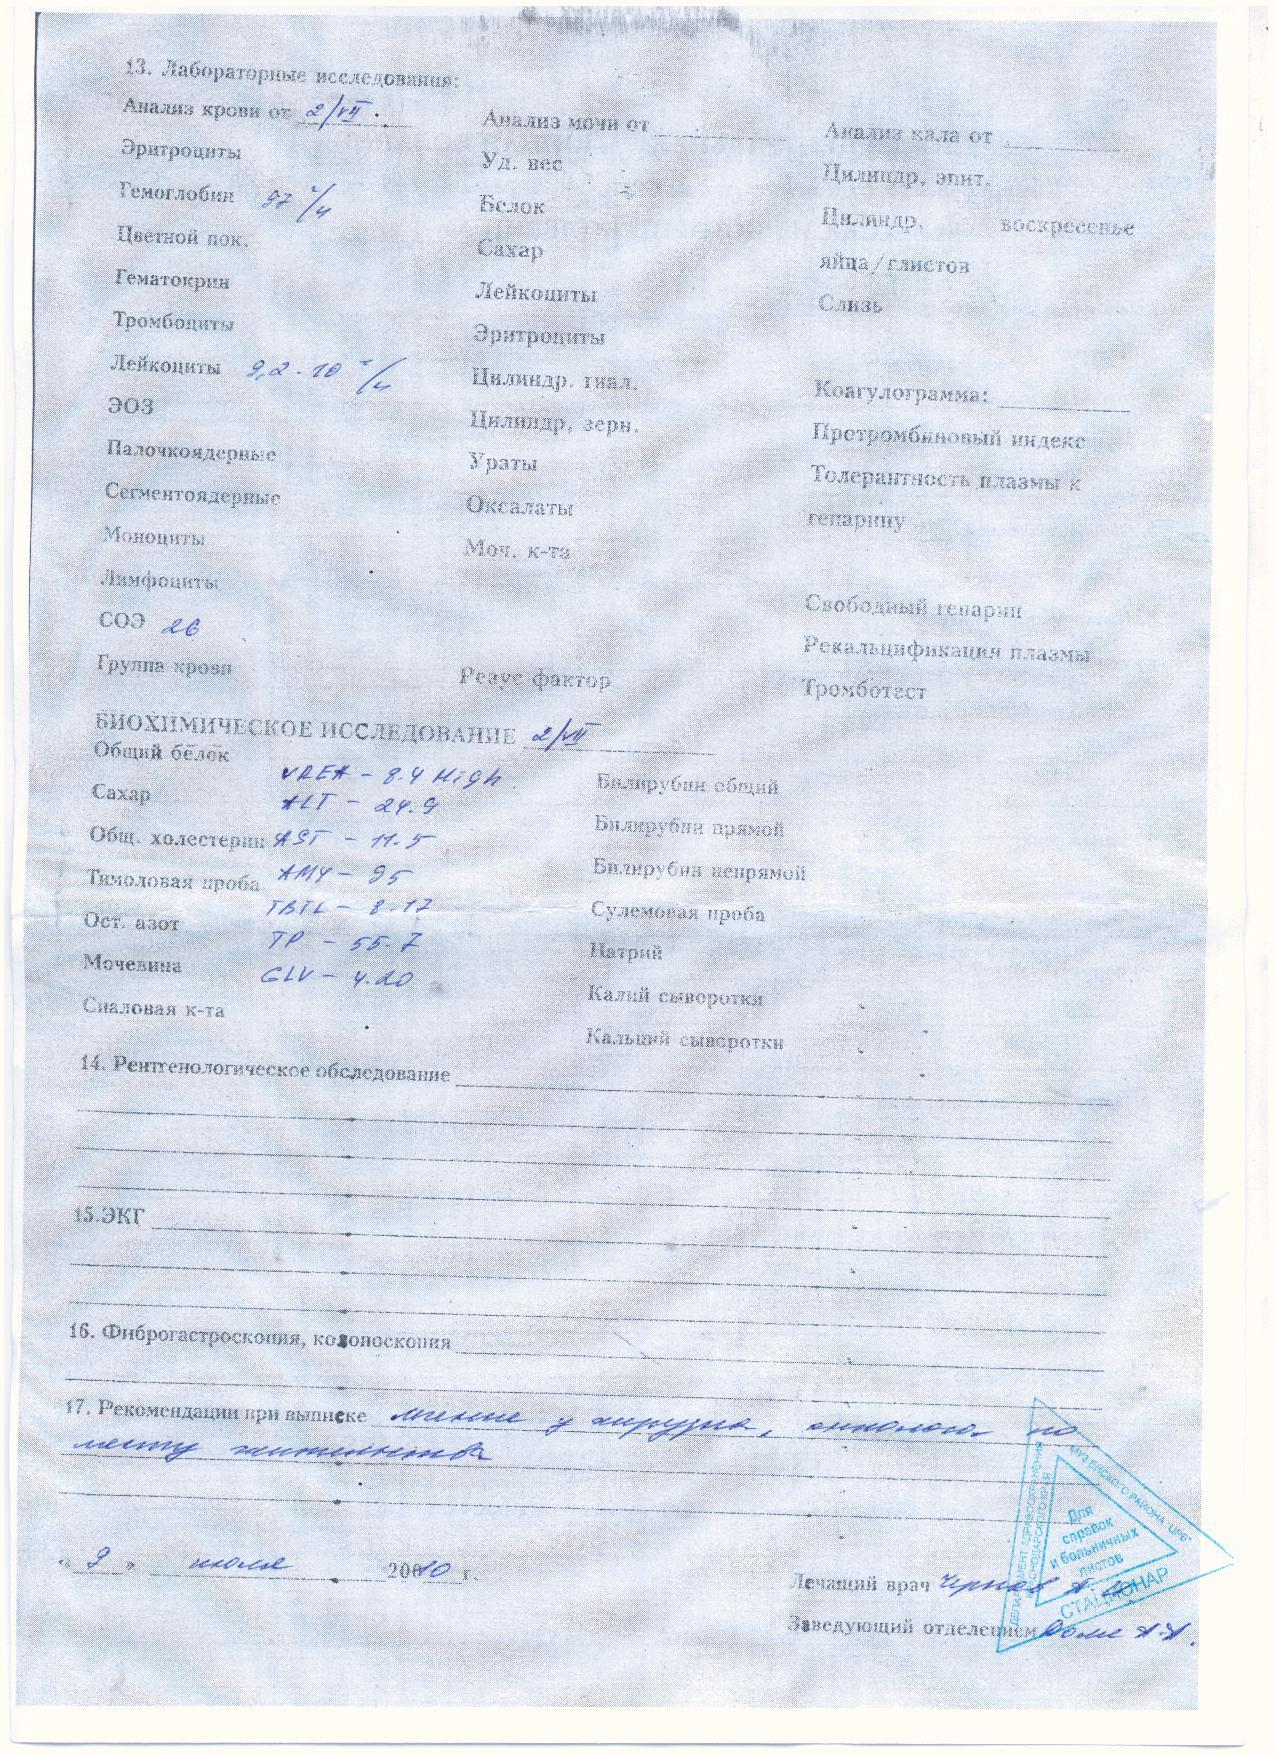 13. Лабораторные исследования:
Анализ крови от 2/VII.
Эритроциты
Гемоглобин 97 г/л
Цветной пок.
Гематокрин
Тромбоциты
Лейкоциты 9,2·10 г/л
ЭОЗ
Палочкоядерные
Сегментоядерные
Моноциты
Лимфоциты
СОЭ 26
Группа крови
Анализ мочи от
Уд. вес
Белок
Сахар
Лейкоциты
Эритроциты
Цилиндр. гиал.
Цилиндр, зерн.
Ураты
Оксалаты
Моч. к-та
Резус фактор
Анализ кала от
Цилиндр, эпит.
Цилиндр, воскресенье
яйца/глистов
Слизь
Коагулограмма:
Протромбиновый индекс
Толерантность плазмы к
гепарину
Свободный гепарин
Рекальцификация плазмы
Тромботест
БИОХИМИЧЕСКОЕ ИССЛЕДОВАНИЕ 2/VII
Общий белок
UREA - 8.4 High
Сахар
ALT - 24.9
Общ. холестерин AST - 11.5
Тимоловая проба AMY - 95
TBIL - 8.17
Ост. азот
TP - 55.7
Мочевина GLU - 4.20
Сиаловая к-та
Билирубин общий
Билирубин прямой
Билирубин непрямой
Сулемовая проба
Натрий
Калий сыворотки
Кальций сыворотки
14. Рентгенологическое обследование
15.ЭКГ
16. Фиброгастроскопия, колоноскопия
17. Рекомендации при выписке лечение у хирурга, онколога по
месту жительства
« 9 » июля 2010 г.
Лечащий врач
Заведующий отделением
ДЕПАРТАМЕНТ ЗДРАВООХРАНЕНИЯ
КРАСНОДАРСКОГО КРАЯ
МУЗ ЕЙСКОГО РАЙОНА "ЦРБ"
Для
справок
и больничных
листов
СТАЦИОНАР